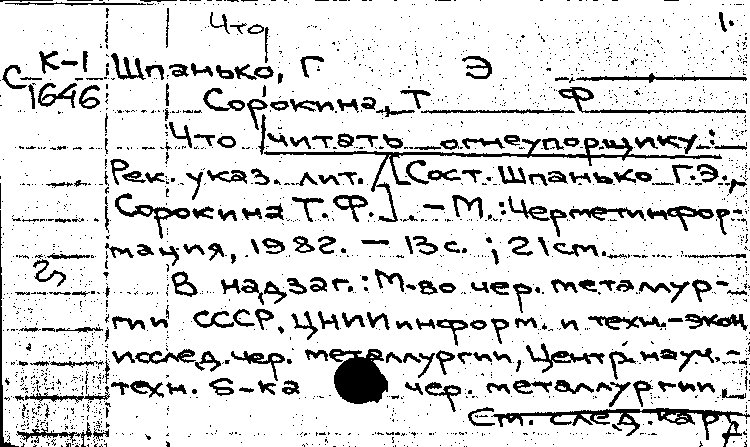 Что 1.
С К-1 Шпанько, Г Э
1646 Сорокина, Т Ф
Что читать огнеупорщику:
Рек. указ. лит. / [Сост. Шпанько Г.Э.,
Сорокина Т.Ф.]. - М.: Черметинфор-
мация, 1982. - 13 с. ; 21 см.
В надзаг.: М-во чер. металлур-
гии СССР, ЦНИИ информ. и техн.-экон.
исслед. чер. металлургии, Центр. науч.-
техн. б-ка чер. металлургии.
См. след. карт